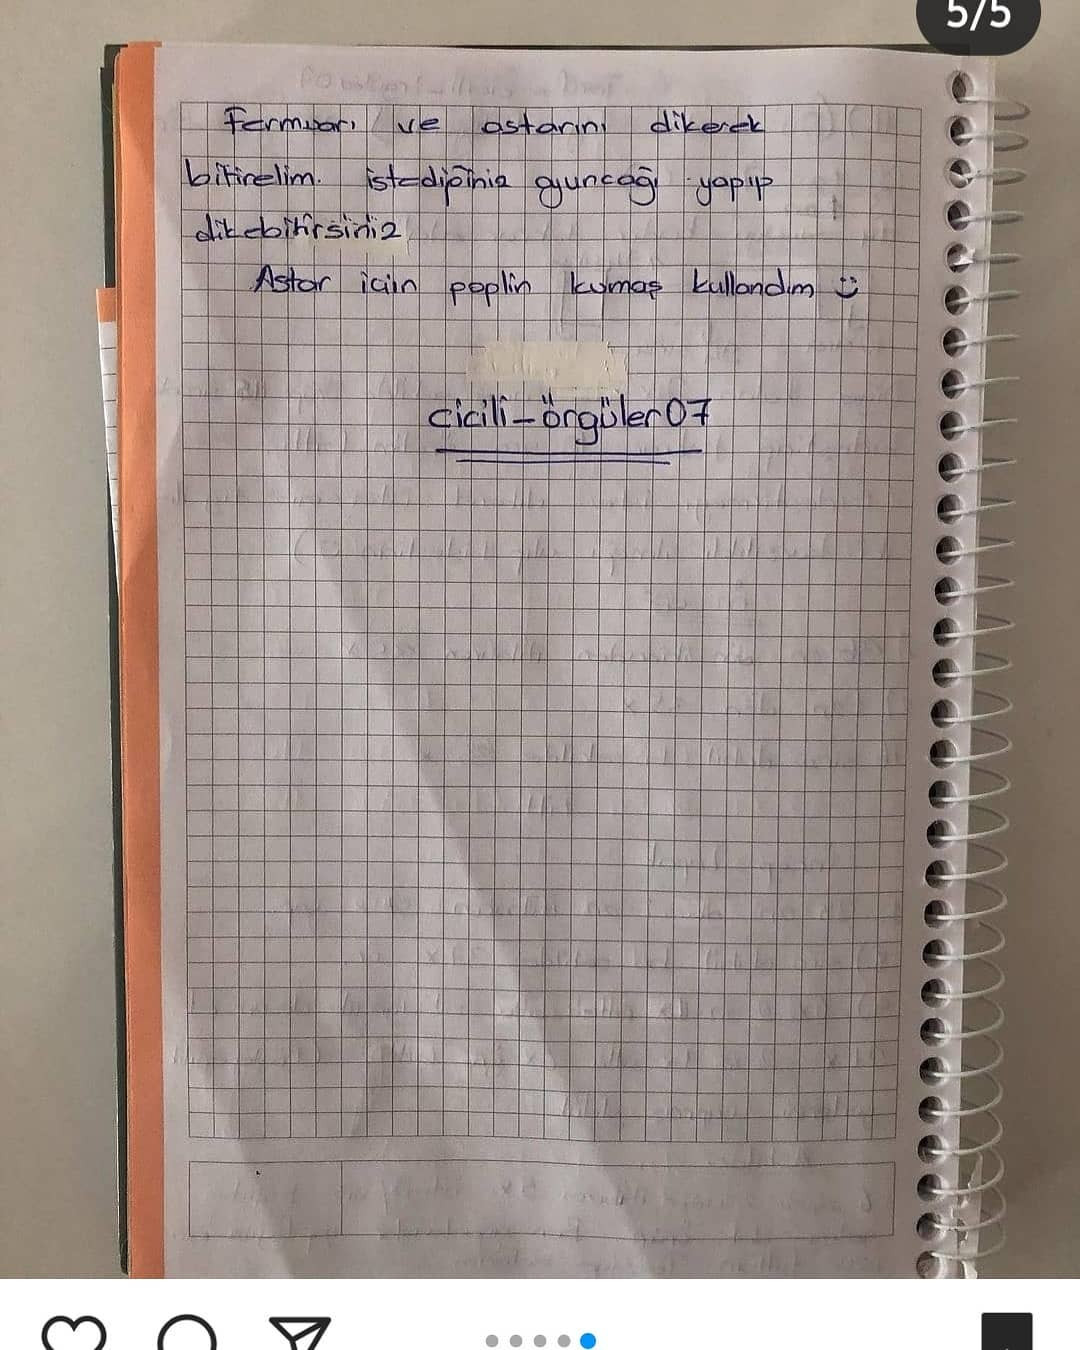 5/5
Fermuarı ve astarını dikerek
bitirelim. istediğiniz oyuncağı yapıp
dikebilirsiniz
Astar için poplin kumaş kullandım :)
cicili-örgüler07